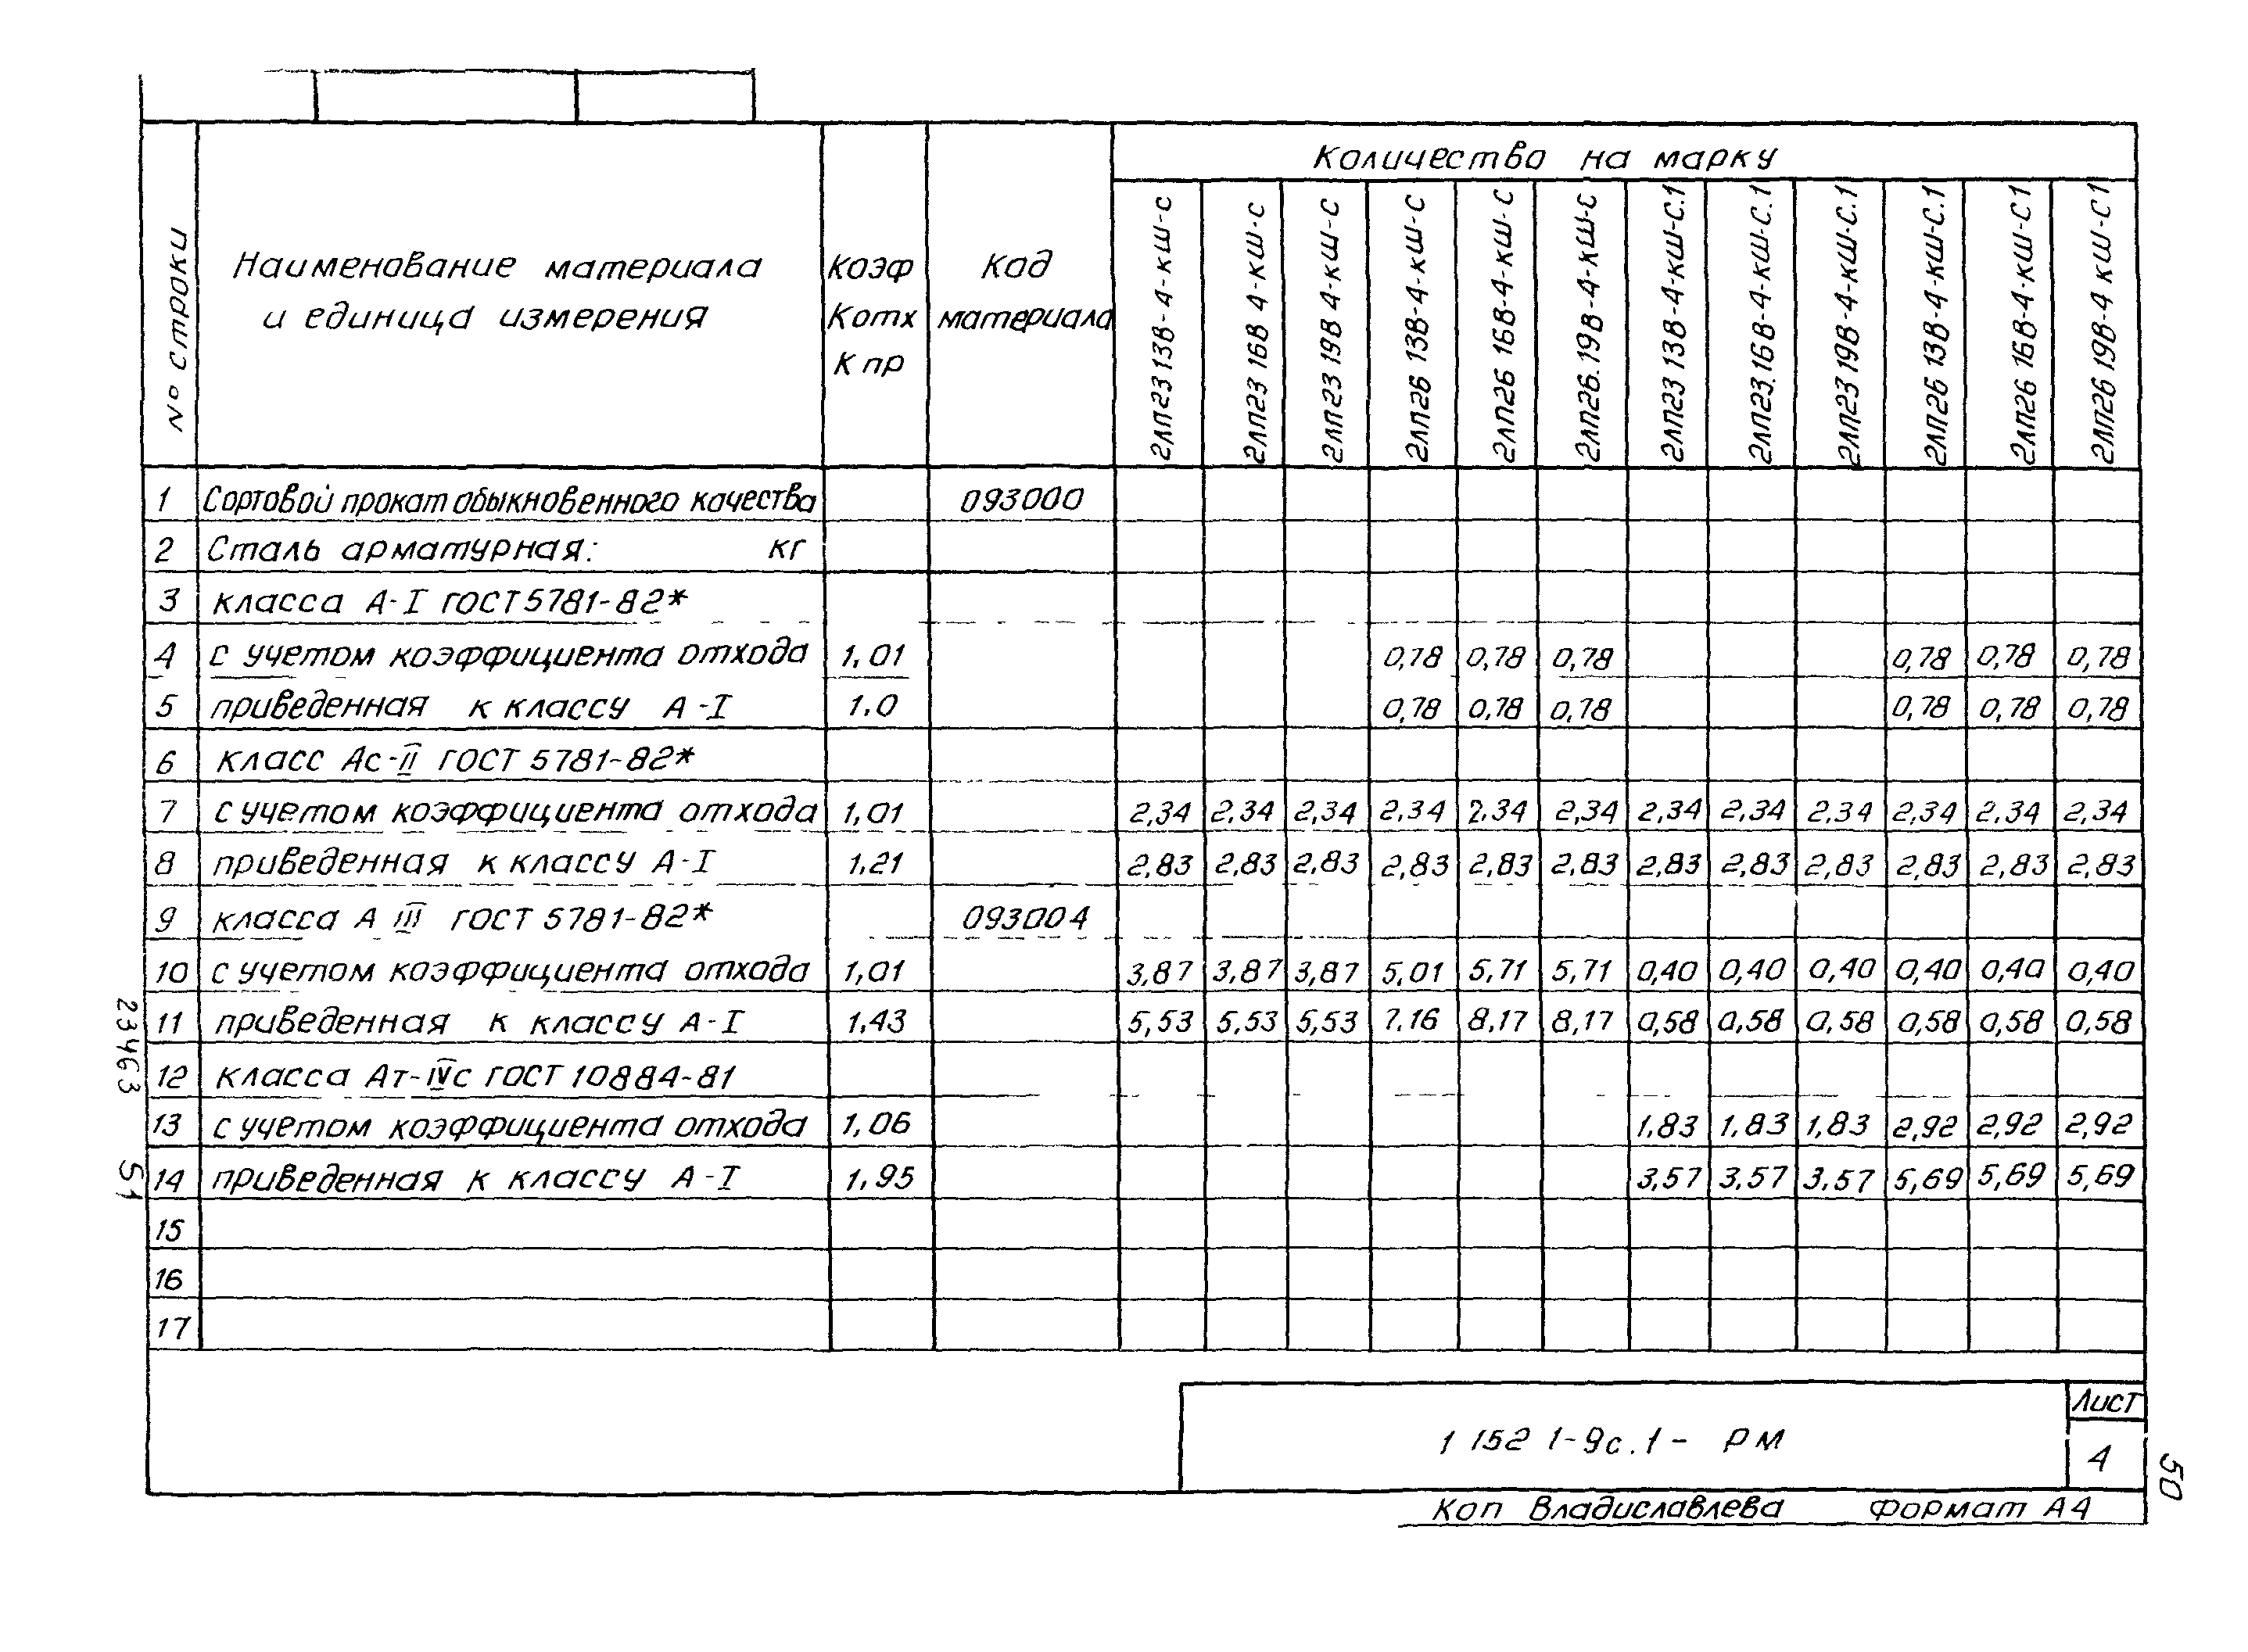 Количество на марку
№ строки
Наименование материала
и единица измерения
Коэф
Котх
К пр
Код
материала
2ЛП23 13В-4-кш-с
2ЛП23 16В 4-кш-с
2ЛП23 19В 4-кш-с
2ЛП26 13В-4-кш-с
2ЛП26 16В-4-кш-с
2ЛП26.19В-4-кш-с
2ЛП23 13В-4-кш-с.1
2ЛП23.16В-4-кш-с.1
2ЛП23 19В-4-кш-с.1
2ЛП26 13В-4-кш-с.1
2ЛП26 16В-4-кш-с1
2ЛП26 19В-4 кш-с1
1 Сортовой прокат обыкновенного качества 093000
2 Сталь арматурная: кг
3 класса А-I ГОСТ 5781-82*
4 с учетом коэффициента отхода 1,01 0,78 0,78 0,78 0,78 0,78 0,78
5 приведенная к классу А-I 1.0 0,78 0,78 0,78 0,78 0,78 0,78
6 класс Ас-II ГОСТ 5781-82*
7 с учетом коэффициента отхода 1,01 2,34 2.34 2,34 2.34 2.34 2,34 2,34 2.34 2.34 2,34 2.34 2,34
8 приведенная к классу А-I 1.21 2,83 2,83 2.83 2,83 2,83 2,83 2,83 2,83 2,83 2,83 2,83 2,83
9 класса А III ГОСТ 5781-82* 093004
10 с учетом коэффициента отхода 1,01 3,87 3,87 3,87 5,01 5,71 5,71 0,40 0,40 0,40 0,40 0,40 0,40
11 приведенная к классу А-I 1,43 5,53 5,53 5,53 7.16 8,17 8,17 0,58 0,58 0,58 0,58 0,58 0,58
12 класса Ат-IVс ГОСТ 10884-81
13 с учетом коэффициента отхода 1,06 1.83 1,83 1,83 2,92 2,92 2,92
14 приведенная к классу А-I 1,95 3,57 3,57 3,57 5,69 5,69 5,69
15
16
17
23463 51
1 152 1-9с.1- РМ
Лист
4
50
Коп Владиславлева Формат А4